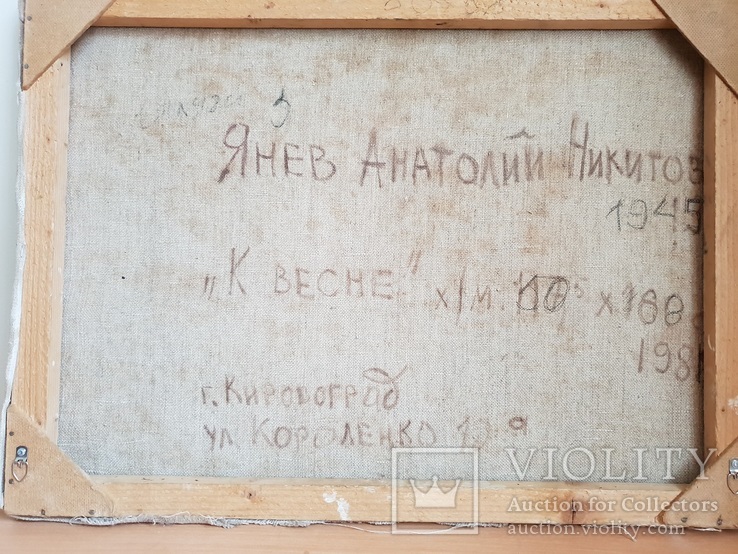 ЯНЕВ АНАТОЛИЙ НИКИТОВ
1945
„К ВЕСНЕ" х/м.
198
г. Кировоград
ул КОРОЛЕНКО
VIOLITY
Auction for Collectors
auction.violity.com